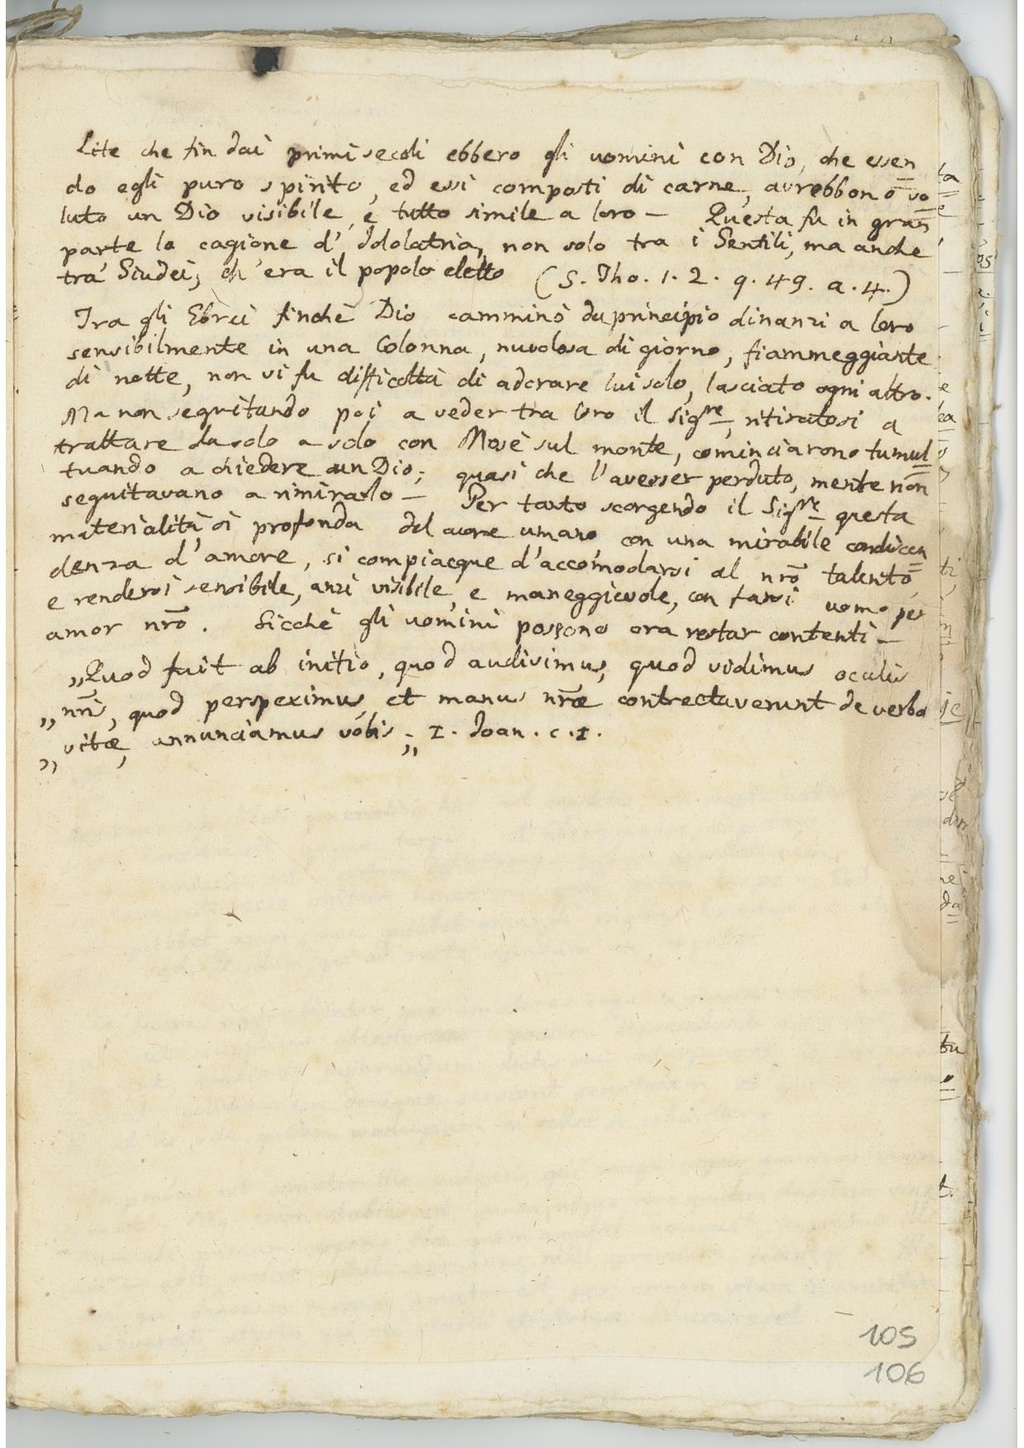 Lite che fin dai primi secoli ebbero gli uomini con Dio, che essen
do egli puro spirito, ed essi composti di carne, avrebbono vo
luto un Dio visibile, e tutto simile a loro — Questa fu in gran
parte la cagione d'Idolatria, non solo tra i Gentili, ma anche
tra' Giudei, ch'era il popolo eletto (S. Tho. 1. 2. q. 49. a. 4.)
Tra gli Ebrei finchè Dio camminò da principio dinanzi a loro
sensibilmente in una Colonna, nuvolosa di giorno, fiammeggiante
di notte, non vi fu difficoltà di adorare lui solo, lasciato ogni altro.
Ma non seguitando poi a veder tra loro il Sigre, ritiratosi a
trattare da solo a solo con Mosè sul monte, cominciarono tumul
tuando a chiedere un Dio; quasi che l'avesser perduto, mentre non
seguitavano a rimirarlo — Per tanto scorgendo il Sigre questa
materialità sì profonda del cuore umano con una mirabile condiscen
denza d'amore, si compiacque d'accomodarsi al nrō talento
e rendersi sensibile, anzi visibile, e maneggievole, con farsi uomo per
amor nrō. Sicchè gli uomini possono ora restar contenti —
„Quod fuit ab initio, quod audivimus, quod vidimus oculis
„nrīs, quod perspeximus, et manus nrǣ contrectaverunt de verbo
„vitæ, annunciamus vobis„ I. Joan. c. 1.
105
106